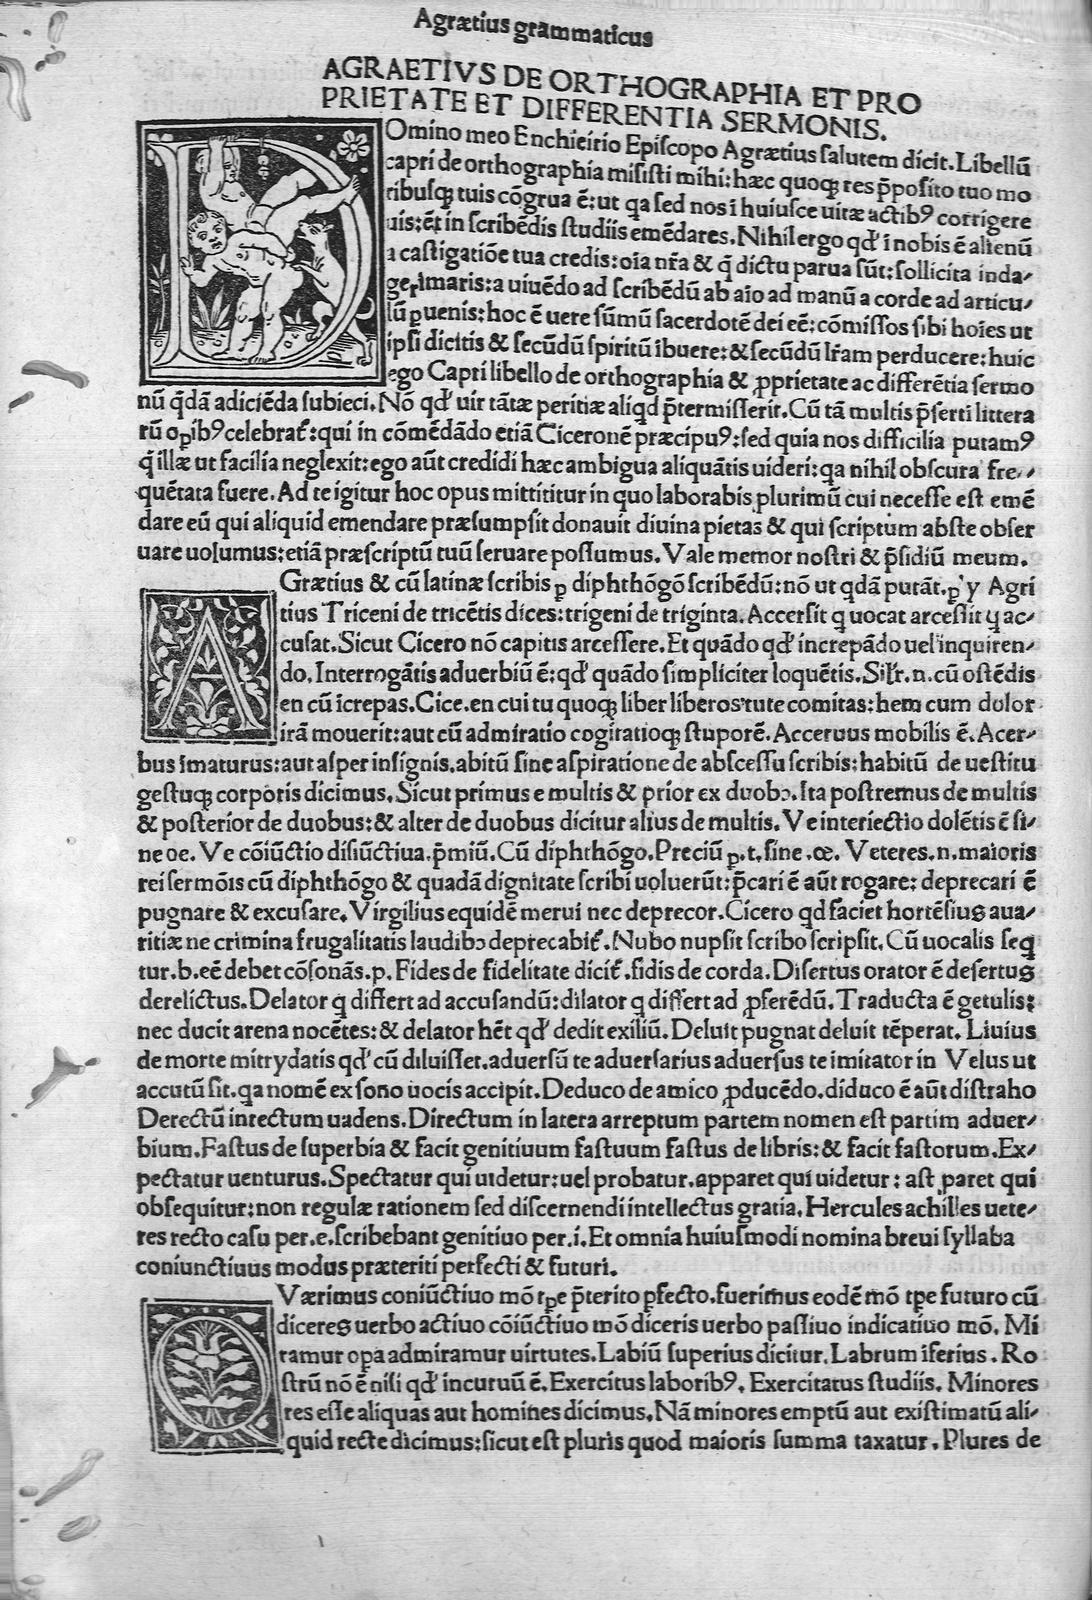 Agrætius grammaticus
AGRAETIVS DE ORTHOGRAPHIA ET PRO
PRIETATE ET DIFFERENTIA SERMONIS.
DOmino meo Enchieirio Epiſcopo Agrætius ſalutem dicit. Libellū
capri de orthographia miſiſti mihi: hæc quoqꝫ res p̄poſito tuo mo
ribuſqꝫ tuis cōgrua ē: ut qa ſed nos ī huiuſce uitæ actibꝰ corrigere
uis: ēt in ſcribēdis ſtudiis emēdares. Nihil ergo qd' ī nobis ē altenū
a caſtigatiōe tua credis: oīa nr̄a & q̄ dictu parua ſūt: ſollicita inda⸗
ge rimaris: a uiuēdo ad ſcribēdū ab aīo ad manū a corde ad articu⸗
lū ꝑuenis: hoc ē uere ſūmū ſacerdotē dei eē: cōmiſſos ſibi hoīes ut
ipſi dicitis & ſecūdū ſpiritū ībuere: & ſecūdū lr̄am perducere: huic
ego Capri libello de orthographia & ꝓprietate ac differētia ſermo
nū q̄dā adiciēda ſubieci. Nō qd' uir tātæ peritiæ aliqd p̄termiſſerit. Cū tā multis p̄ſerti littera
rū oꝑibꝰ celebrat᷑: qui in cōmēdādo etiā Ciceronē præcipuꝰ: ſed quia nos difficilia putamꝰ
q̄ illæ ut facilia neglexit: ego aūt credidi hæc ambigua aliquātis uideri: qa nihil obſcura fre⸗
quētata fuere. Ad te igitur hoc opus mittititur in quo laborabis plurimū cui neceſſe eſt emē
dare eū qui aliquid emendare præſumpſit donauit diuina pietas & qui ſcriptum abſte obſer
uare uolumus: etiā præſcriptū tuū ſeruare poſſumus. Vale memor noſtri & p̄ſidiū meum.
AGrætius & cū latinæ ſcribis ꝑ diphthōgō ſcribēdū: nō ut qdā putāt. ꝑ y Agri
tius Triceni de tricētis dices: trigeni de triginta. Accerſit q uocat arceſſit q ac⸗
cuſat. Sicut Cicero nō capitis arceſſere. Et quādo qd' increpādo uel inquiren⸗
do. Interrogātis aduerbiū ē: qd' quādo ſimpliciter loquētis. Sil'r. n. cū oſtēdis
en cū īcrepas. Cice. en cui tu quoqꝫ liber liberos tute comitas: hem cum dolor
irā mouerit: aut cū admiratio cogitatioqꝫ ſtuporē. Acceruus mobilis ē. Acer⸗
bus imaturus: aut aſper inſignis. abitū ſine aſpiratione de abſceſſu ſcribis: habitū de ueſtitu
geſtuqꝫ corporis dicimus. Sicut primus e multis & prior ex duobꝫ. Ita poſtremus de multis
& poſterior de duobus: & alter de duobus dicitur alius de multis. Ve interiectio dolētis ē ſi⸗
ne oe. Ve cōiūctio diſiūctiua. p̄miū. Cū diphthōgo. Preciū ꝑ. t. ſine. œ. Veteres. n. maioris
rei ſermōis cū diphthōgo & quadā dignitate ſcribi uoluerūt: p̄cari ē aūt rogare: deprecari ē
pugnare & excuſare. Virgilius equidē merui nec deprecor. Cicero qd faciet hortēſius aua⸗
ritiæ ne crimina frugalitatis laudibꝫ deprecabit᷑. Nubo nupſit ſcribo ſcripſit. Cū uocalis ſeq
tur. b. eē debet cōſonās. p. Fides de fidelitate dicit᷑. fidis de corda. Diſertus orator ē deſertus
derelictus. Delator q differt ad accuſandū: dilator q differt ad ꝓferēdū. Traducta ē getulis:
nec ducit arena nocētes: & delator hēt qd' dedit exiliū. Deluit pugnat deluit tēperat. Liuius
de morte mitrydatis qd' cū diluiſſet. aduerſū te aduerſarius aduerſus te imitator in Velus ut
accutū ſit. qa nomē ex ſono uocis accipit. Deduco de amico ꝓducēdo. diduco ē aūt diſtraho
Derectū inrectum uadens. Directum in latera arreptum partem nomen eſt partim aduer⸗
bium. Faſtus de ſuperbia & facit genitiuum faſtuum faſtus de libris: & facit faſtorum. Ex⸗
pectatur uenturus. Spectatur qui uidetur: uel probatur. apparet qui uidetur: aſt paret qui
obſequitur: non regulæ rationem ſed diſcernendi intellectus gratia. Hercules achilles uete⸗
res recto caſu per. e. ſcribebant genitiuo per. i. Et omnia huiuſmodi nomina breui ſyllaba
coniunctiuus modus præteriti perfecti & futuri.
QVærimus coniūctiuo mō tꝑe p̄terito ꝑfecto. fuerimus eodē mō tꝑe futuro cū
diceres uerbo actiuo cōiūctiuo mō diceris uerbo paſſiuo indicatiuo mō. Mi
ramur opa admiramur uirtutes. Labiū ſuperius dicitur. Labrum īferius. Ro
ſtrū nō ē niſi qd' incuruū ē. Exercitus laboribꝰ. Exercitatus ſtudiis. Minores
res eſſe aliquas aut homines dicimus. Nā minores emptū aut exiſtimatū ali⸗
quid recte dicimus: ſicut eſt pluris quod maioris ſumma taxatur. Plures de